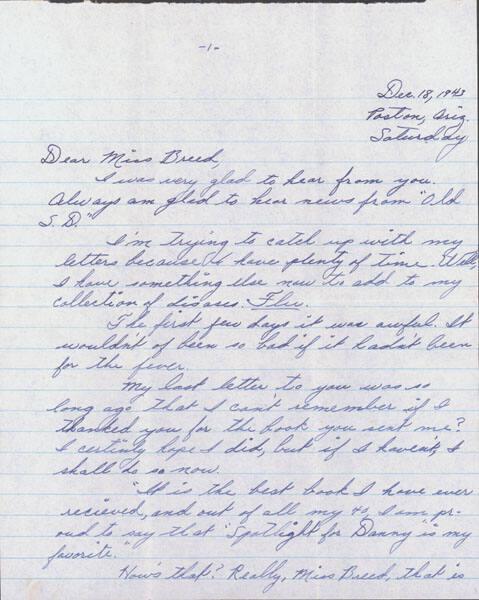 -1-
Dec. 18, 1943
Poston, Ariz.
Saturday
Dear Miss Breed,
I was very glad to hear from you.
Always am glad to hear news from "Old
S.D."
I'm trying to catch up with my
letters because I have plenty of time. Well,
I have something else now to add to my
collection of diseases. Flu.
The first few days it was awful. It
wouldn't of been so bad if it hadn't been
for the fever.
My last letter to you was so
long ago that I can't remember if I
thanked you for the book you sent me?
I certinly hope I did, but if I haven't, I
shall do so now.
"It is the best book I have ever
recieved, and out of all my 40, I am pr-
oud to say that "Spotlight for Danny" is my
favorite."
How's that? Really, Miss Breed, that is